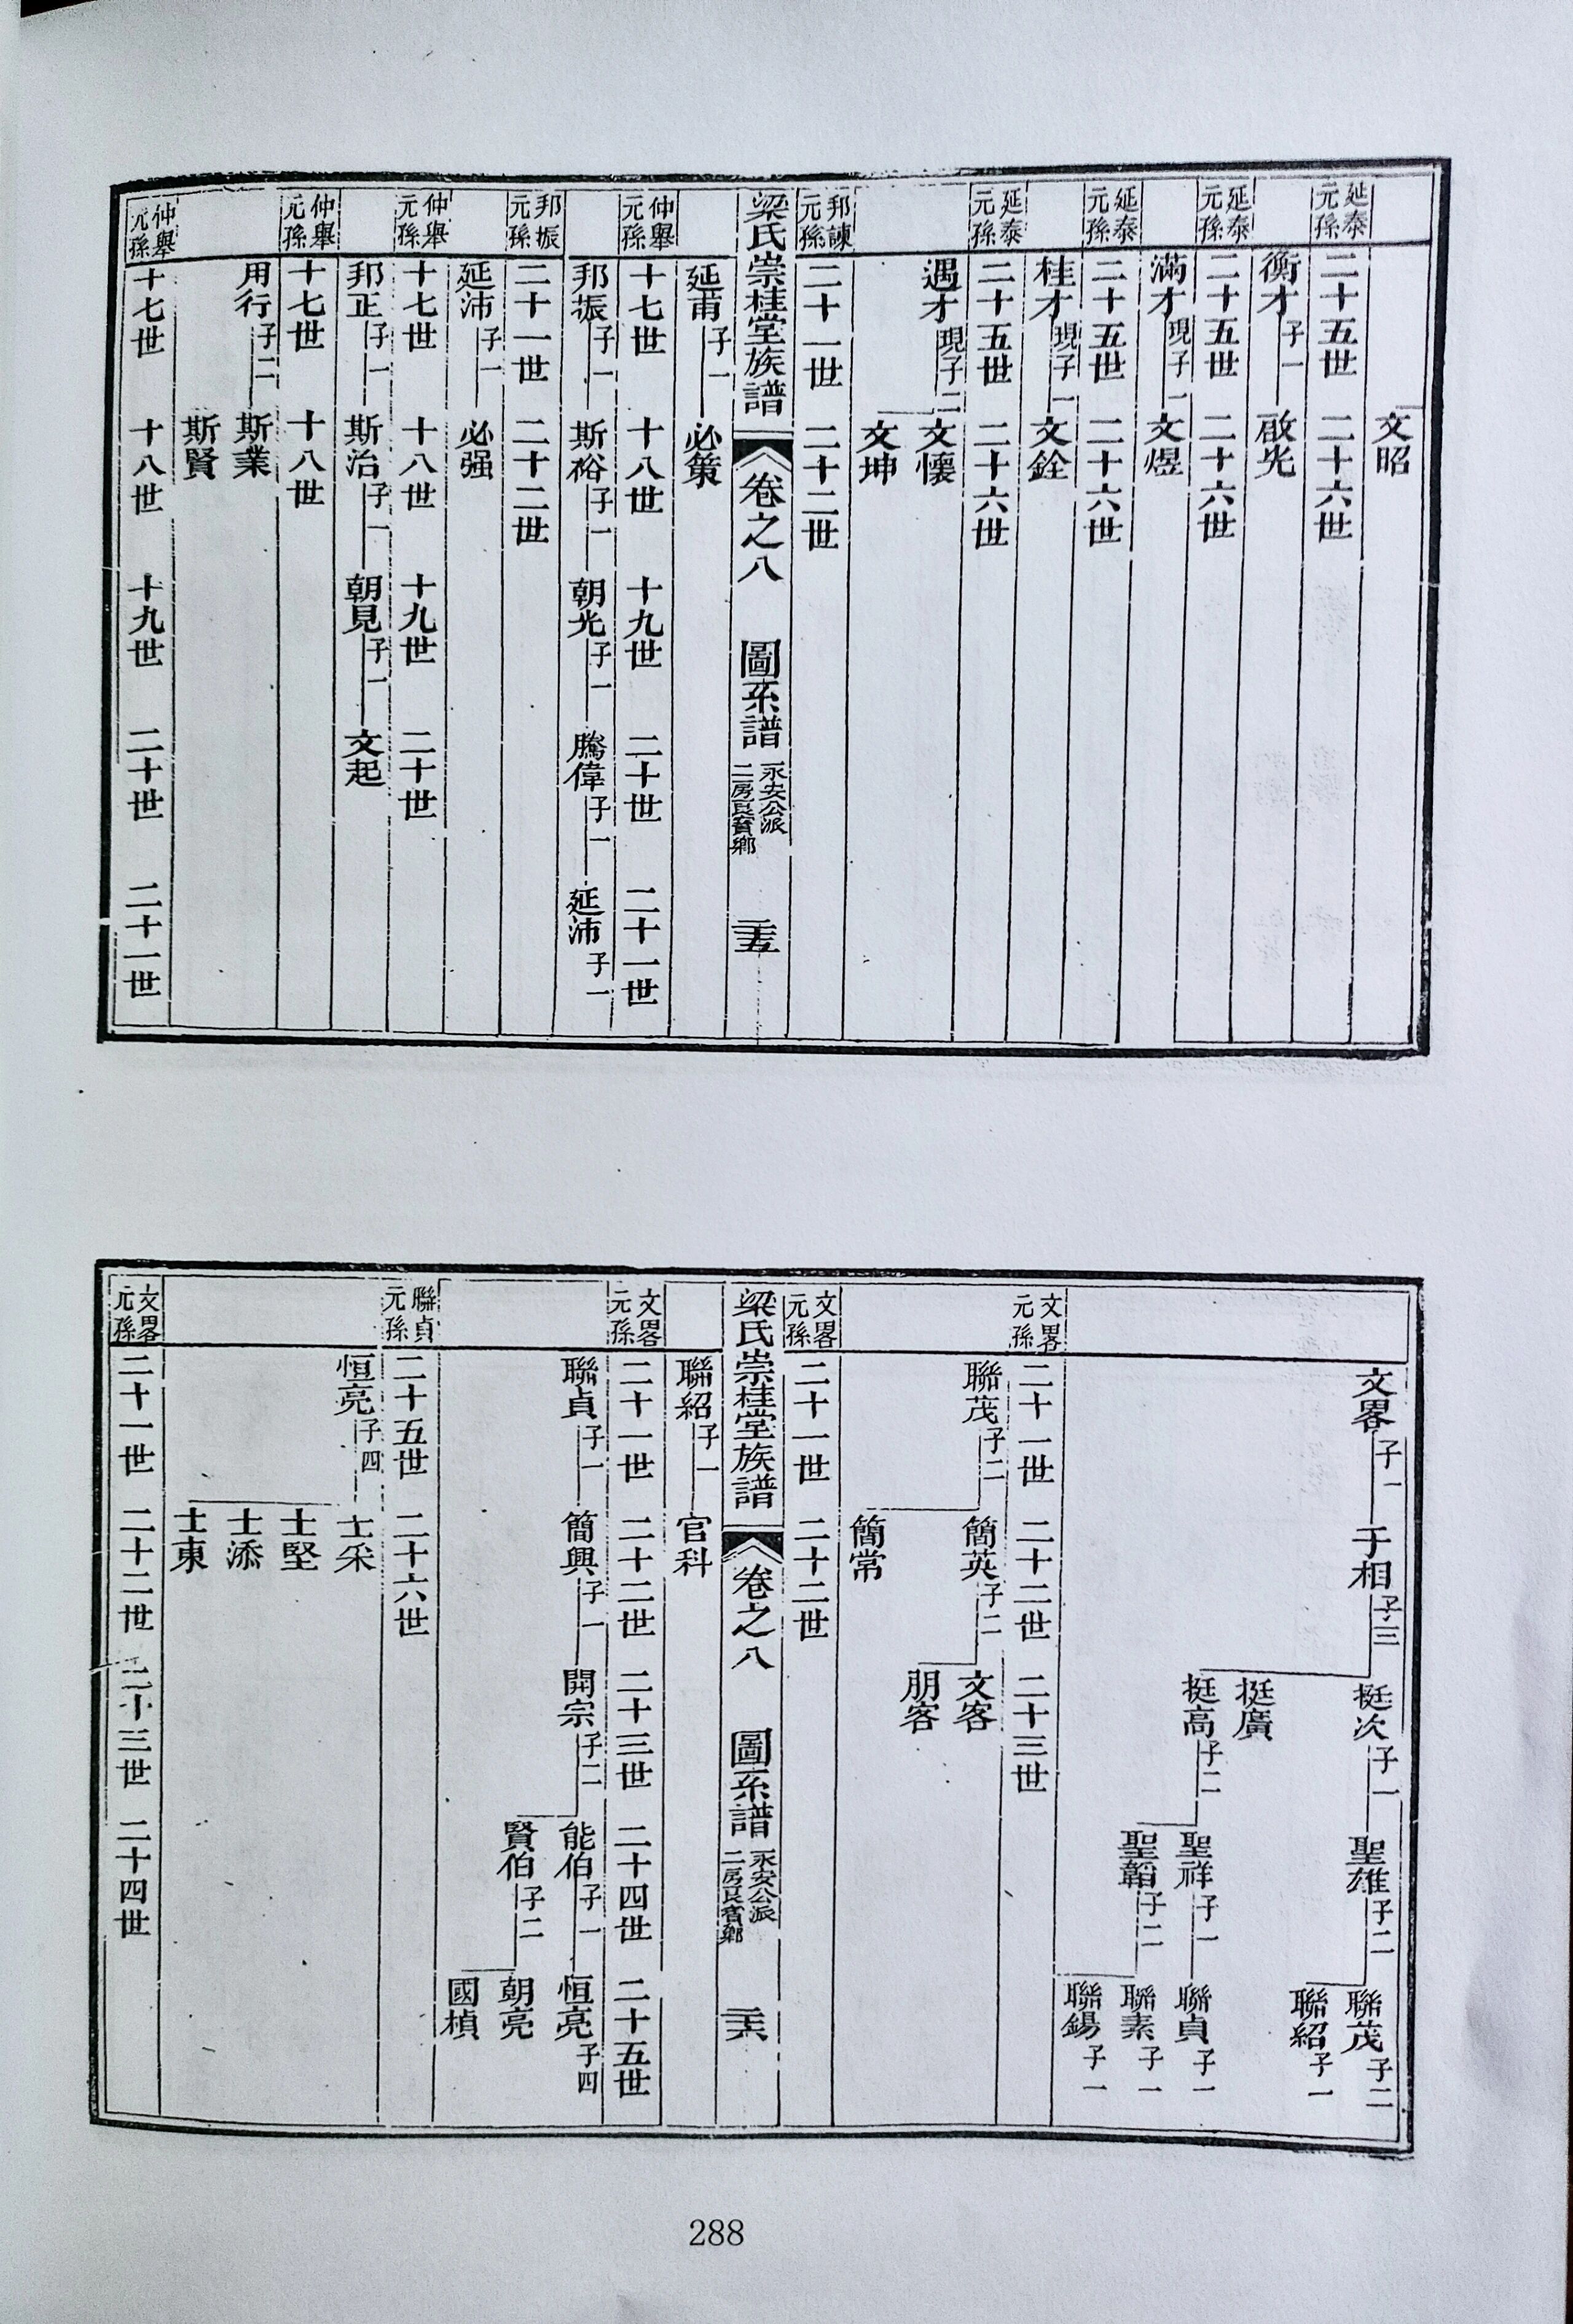 文昭
延泰元孫 二十五世 二十六世
衡才 子一 啟光
延泰元孫 二十五世 二十六世
滿才 現子一 文煜
延泰元孫 二十五世 二十六世
桂才 現子一 文銓
延泰元孫 二十五世 二十六世
遇才 現子二 文懷
文坤
邦諫元孫 二十一世 二十二世
梁氏崇桂堂族譜 卷之八 圖系譜 永安公派 二房良賓鄉 二十五
延甫 子一 必策
仲舉元孫 十七世 十八世 十九世 二十世 二十一世
邦振 子一 斯裕 子一 朝光 子一 騰偉 子一 延沛 子一
邦振元孫 二十一世 二十二世
延沛 子一 必强
仲舉元孫 十七世 十八世 十九世 二十世
邦正 子一 斯治 子一 朝見 子一 文起
仲舉元孫 十七世 十八世
用行 子二 斯業
斯賢
仲舉元孫 十七世 十八世 十九世 二十世 二十一世
文畧 子一 于相 子三 挺次 子一 聖雄 子二 聯茂 子二
聯紹 子一
挺廣
挺高 子二 聖祥 子一 聯貞 子一
聖韜 子二 聯素 子一
聯錫 子一
文畧元孫 二十一世 二十二世 二十三世
聯茂 子二 簡英 子二 文客
朋客
簡常
文畧元孫 二十一世 二十二世
梁氏崇桂堂族譜 卷之八 圖系譜 永安公派 二房良賓鄉 二十六
聯紹 子一 官科
文畧元孫 二十一世 二十二世 二十三世 二十四世 二十五世
聯貞 子一 簡興 子一 開宗 子二 能伯 子一 恒亮 子四
賢伯 子二 朝亮
國楨
聯貞元孫 二十五世 二十六世
恒亮 子四 士釆
士堅
士添
士東
文畧元孫 二十一世 二十二世 二十三世 二十四世
288